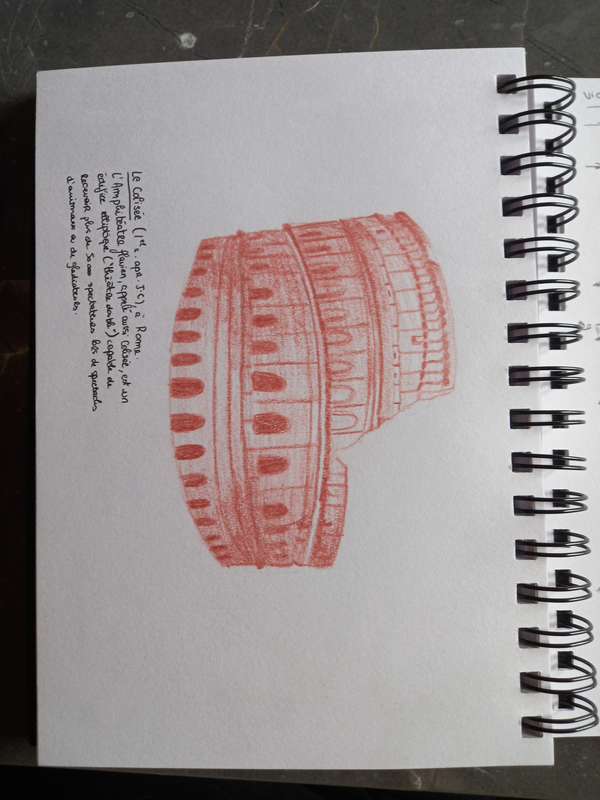 Le Colisée (1er s. apr. J-C), à Rome.
L'Amphitéatre flavien, appelé aussi Colisée, est un
édifice elliptique ("théâtre double") capable de
recevoir plus de 50 000 spectateurs lors de spectacles
d'animaux ou de gladiateurs.